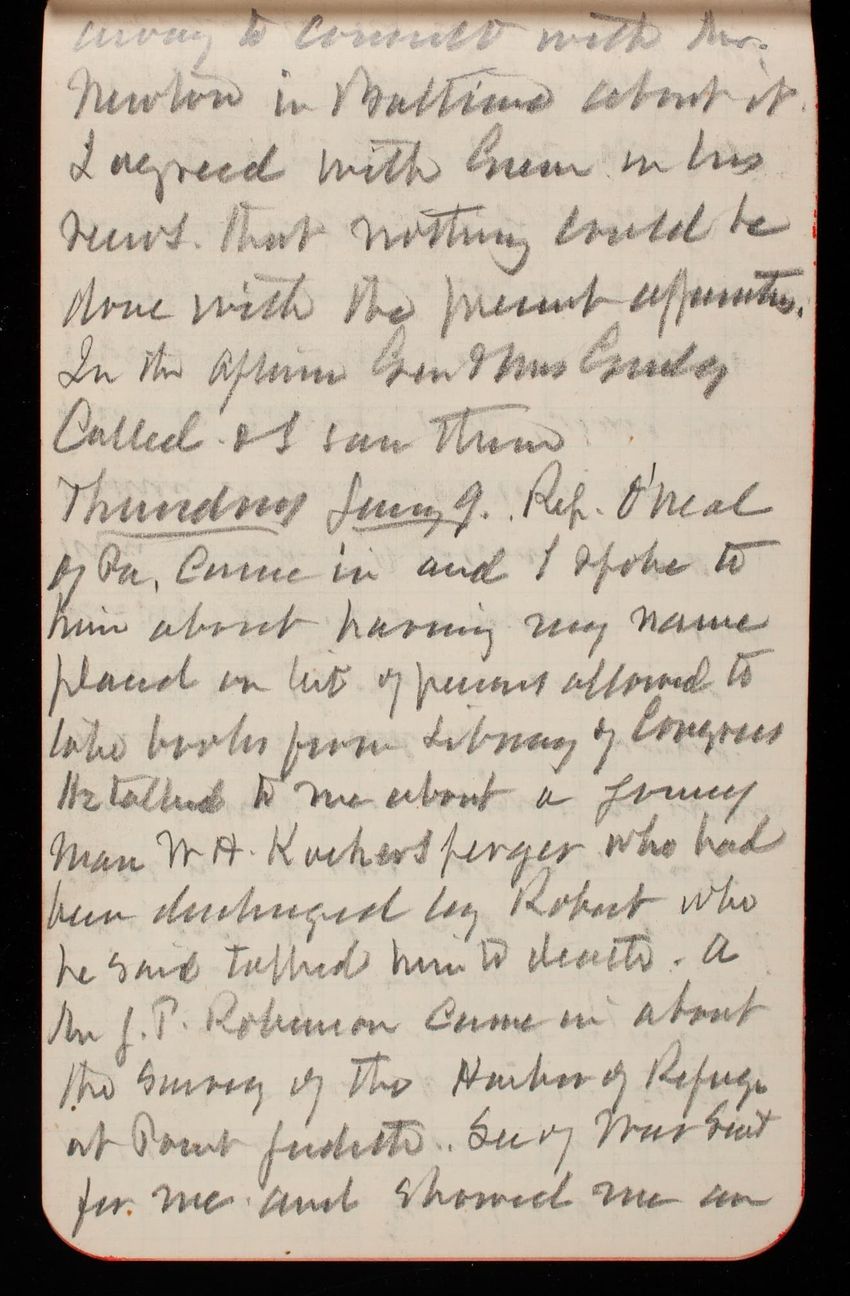 away to consult with Mr.
Newton in Baltimore about it.
I agreed with Green in his
views that nothing could be
done with the present apparatus.
In the afternn Gen & Mrs Greely
Called & I saw them
Thursday Jany 9. Rep. O'Neal
of Pa, came in and I spoke to
him about having my name
placed on list of persons allowed to
take books from Library of Congress
He talked to me about a young
man W H. Kochersperger who had
been discharged by Robert who
he said talked him to death. A
Mr J. P. Robinson came in about
the survey of the Harbor of Refuge
at Point Judith. Secy War sent
for me and showed me an